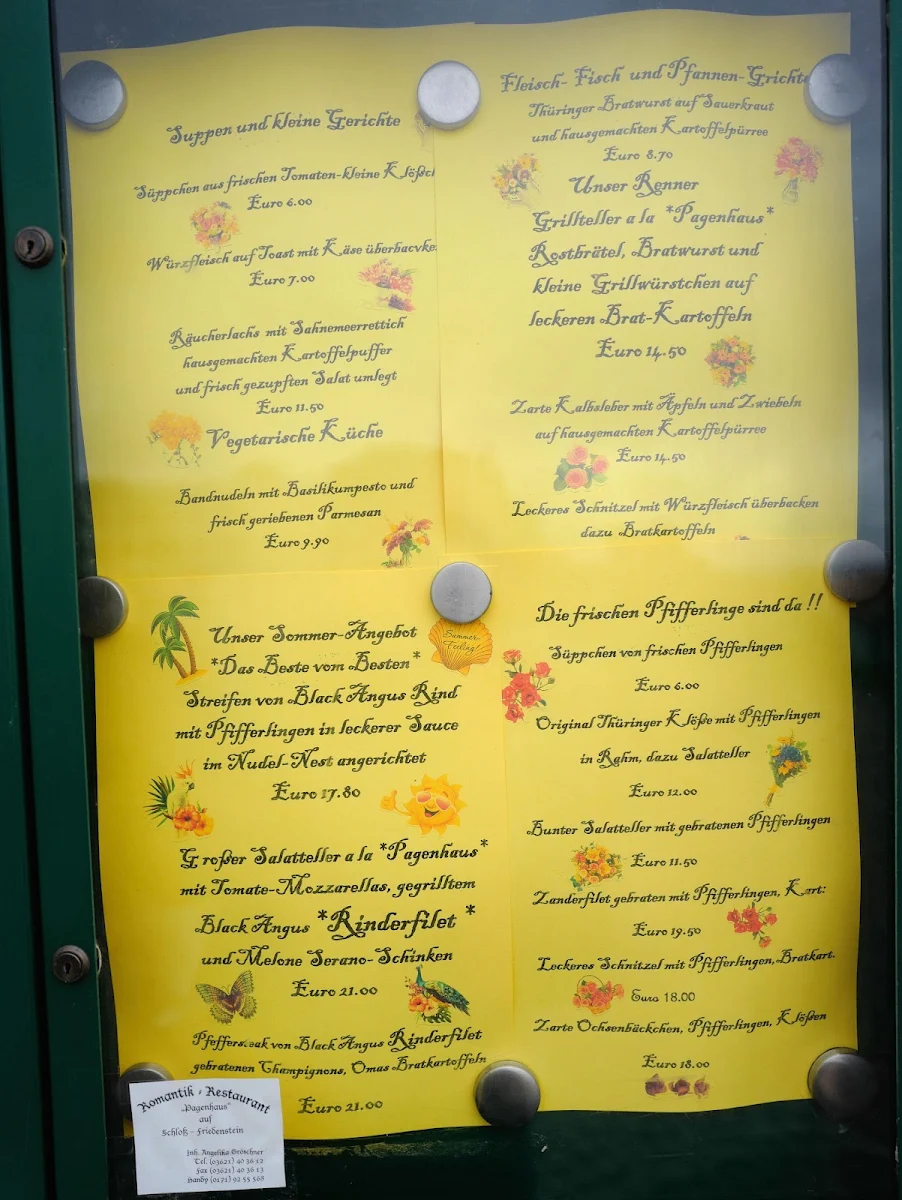 Suppen und kleine Gerichte
Süppchen aus frischen Tomaten-kleine Klößch
Euro 6.00
Würzfleisch auf Toast mit Käse überbacvke
Euro 7.00
Räucherlachs mit Sahnemeerrettich
hausgemachten Kartoffelpuffer
und frisch gezupften Salat umlegt
Euro 11.50
Vegetarische Küche
Bandnudeln mit Basilikumpesto und
frisch geriebenen Parmesan
Euro 9.90
Fleisch- Fisch und Pfannen-Grichte
Thüringer Bratwurst auf Sauerkraut
und hausgemachten Kartoffelpürree
Euro 8.70
Unser Renner
Grillteller a la *Pagenhaus*
Rostbrätel, Bratwurst und
kleine Grillwürstchen auf
leckeren Brat-Kartoffeln
Euro 14.50
Zarte Kalbsleber mit Äpfeln und Zwiebeln
auf hausgemachten Kartoffelpürree
Euro 14.50
Leckeres Schnitzel mit Würzfleisch überbacken
dazu Bratkartoffeln
Unser Sommer-Angebot
*Das Beste vom Besten*
Summer-
Feeling!
Streifen von Black Angus Rind
mit Pfifferlingen in leckerer Sauce
im Nudel-Nest angerichtet
Euro 17.80
Großer Salatteller a la *Pagenhaus*
mit Tomate-Mozzarellas, gegrilltem
Black Angus *Rinderfilet *
und Melone Serano-Schinken
Euro 21.00
Pfeffersteak von Black Angus Rinderfilet
gebratenen Champignons, Omas Bratkartoffeln
Euro 21.00
Die frischen Pfifferlinge sind da !!
Süppchen von frischen Pfifferlingen
Euro 6.00
Original Thüringer Klöße mit Pfifferlingen
in Rahm, dazu Salatteller
Euro 12.00
Bunter Salatteller mit gebratenen Pfifferlingen
Euro 11.50
Zanderfilet gebraten mit Pfifferlingen, Kart:
Euro 19.50
Leckeres Schnitzel mit Pfifferlingen, Bratkart.
Euro 18.00
Zarte Ochsenbäckchen, Pfifferlingen, Klößen
Euro 18.00
Romantik - Restaurant
„Pagenhaus"
auf
Schloß - Friedenstein
Inh. Angelika Gröschner
Tel. (03621) 40 36 12
Fax (03621) 40 36 13
Handy (0171) 92 55 568